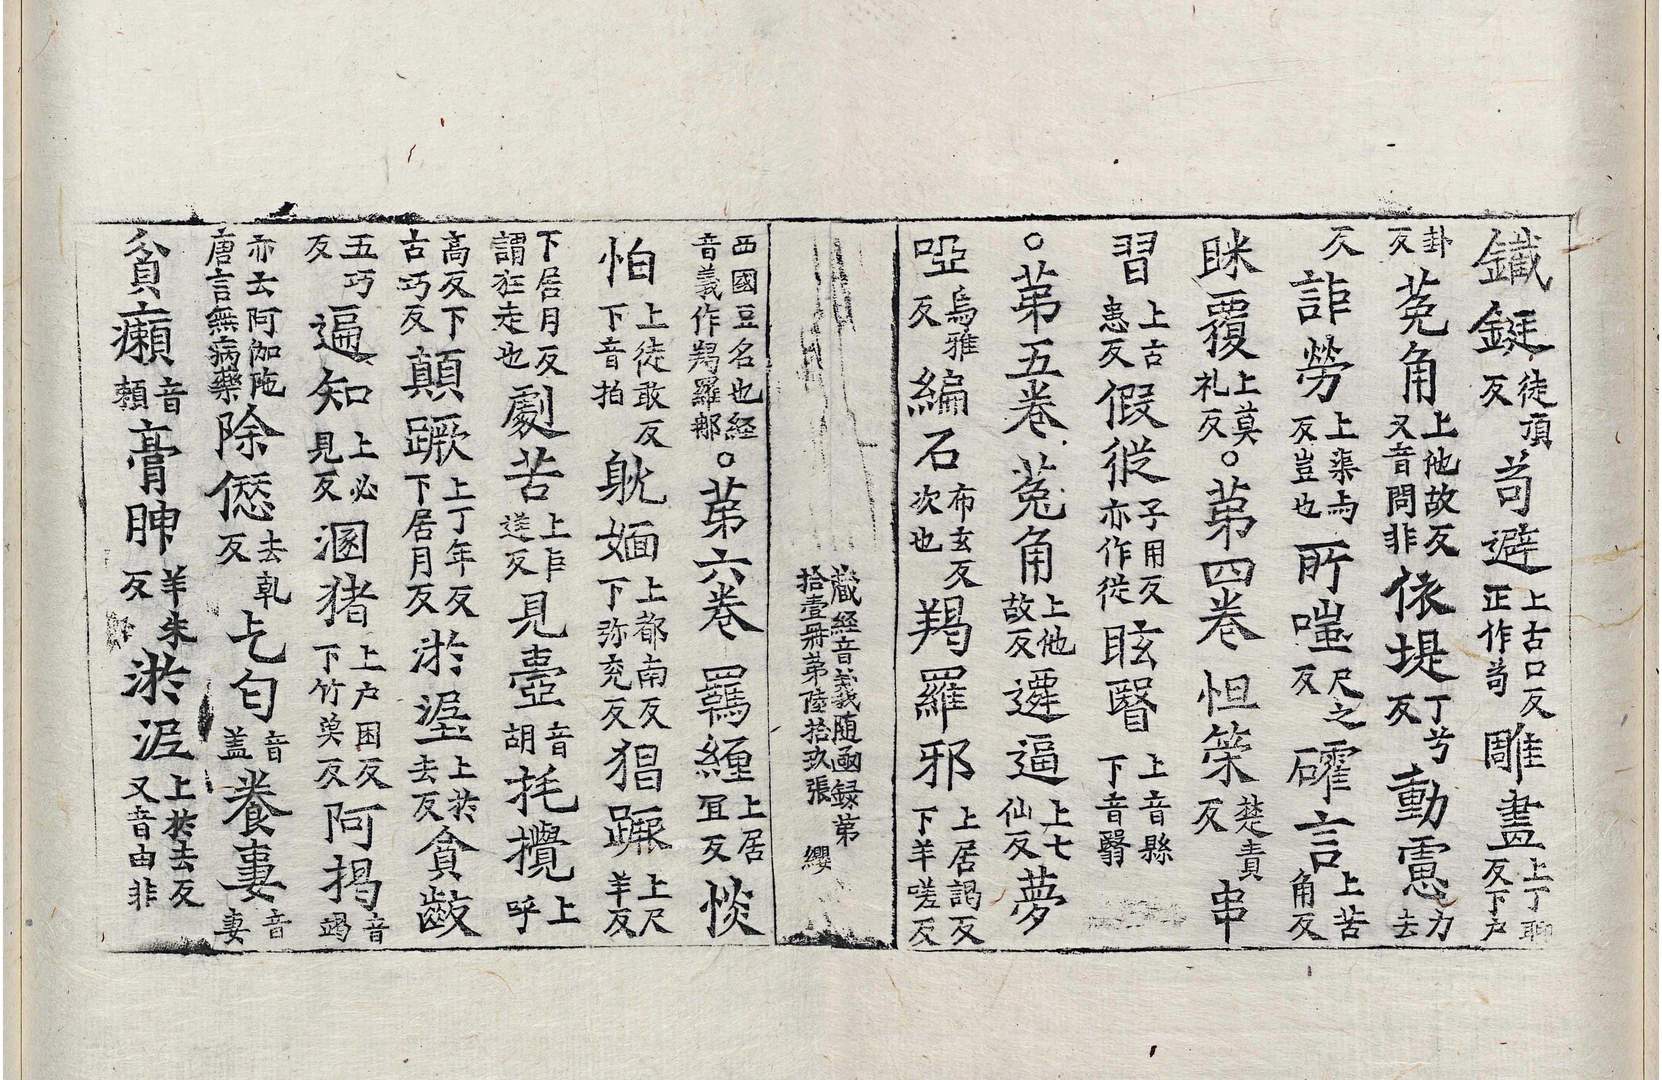 鐵鋌徒頂反苟避上古口反正作茍雕畫上丁聊反下户
卦反菟角上他故反又音問非依堤丁兮反動慮力去
反詐勞上渠与反豈也所嗤尺之反確言上苦角反
眯覆上莫礼反○第四卷怛筞楚責反串
習上古患反假從子用反亦作從眩瞖上音縣下音翳
○第五卷菟角上他故反遷逼上七仙反夢
啞烏雅反編石布玄反次也羯羅邪上居謁反下羊嗟反
藏經音義随函録第拾壹冊第陸拾玖張 纓
西國豆名也経音義作羯羅那○第六卷羈纏上居冝反惔
怕上徒敢反下音拍躭媔上都南反下弥兖反猖蹶上尺羊反
下居月反謂狂走也劇苦上巨逆反見壼音胡托攪上呼
高反下古巧反顛蹶上丁年反下居月反淤湼上於去反貪齩
五巧反遍知上必見反溷猪上户困反下竹奠反阿揭音竭
亦云阿伽陁唐言無病藥除愆去乹反乞匂音盖養妻音妻
貧癩音頼膏腴羊朱反淤泥上於去反又音由非